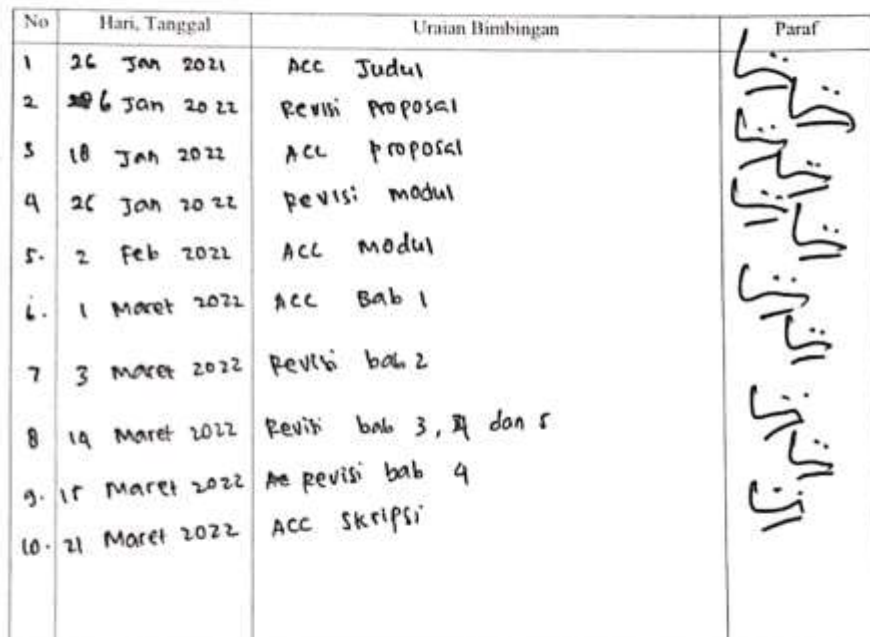 No Hari, Tanggal Uraian Bimbingan Paraf
1 26 Jan 2021 Acc Judul
2 6 Jan 2022 Revisi proposal
3 18 Jan 2022 ACC proposal
4 26 Jan 2022 Revisi modul
5. 2 Feb 2022 ACC Modul
6. 1 Maret 2022 ACC Bab 1
7 3 Maret 2022 Revisi bab 2
8 14 Maret 2022 Revisi bab 3, 4 dan 5
9. 15 Maret 2022 revisi bab 4
10. 21 Maret 2022 ACC Skripsi